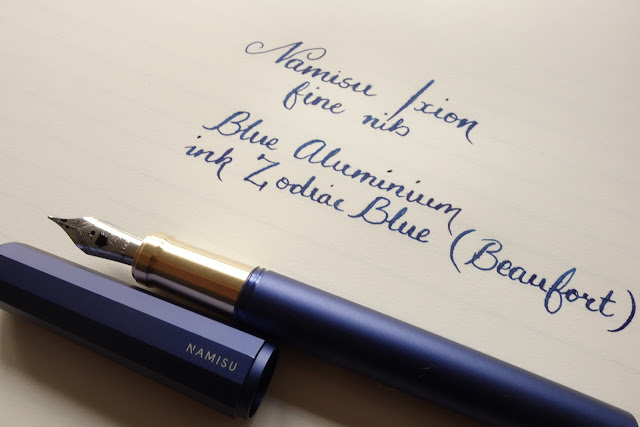 Namisu Ixion
fine nib
Blue Aluminium
ink Zodiac Blue (Beaufort)
NAMISU